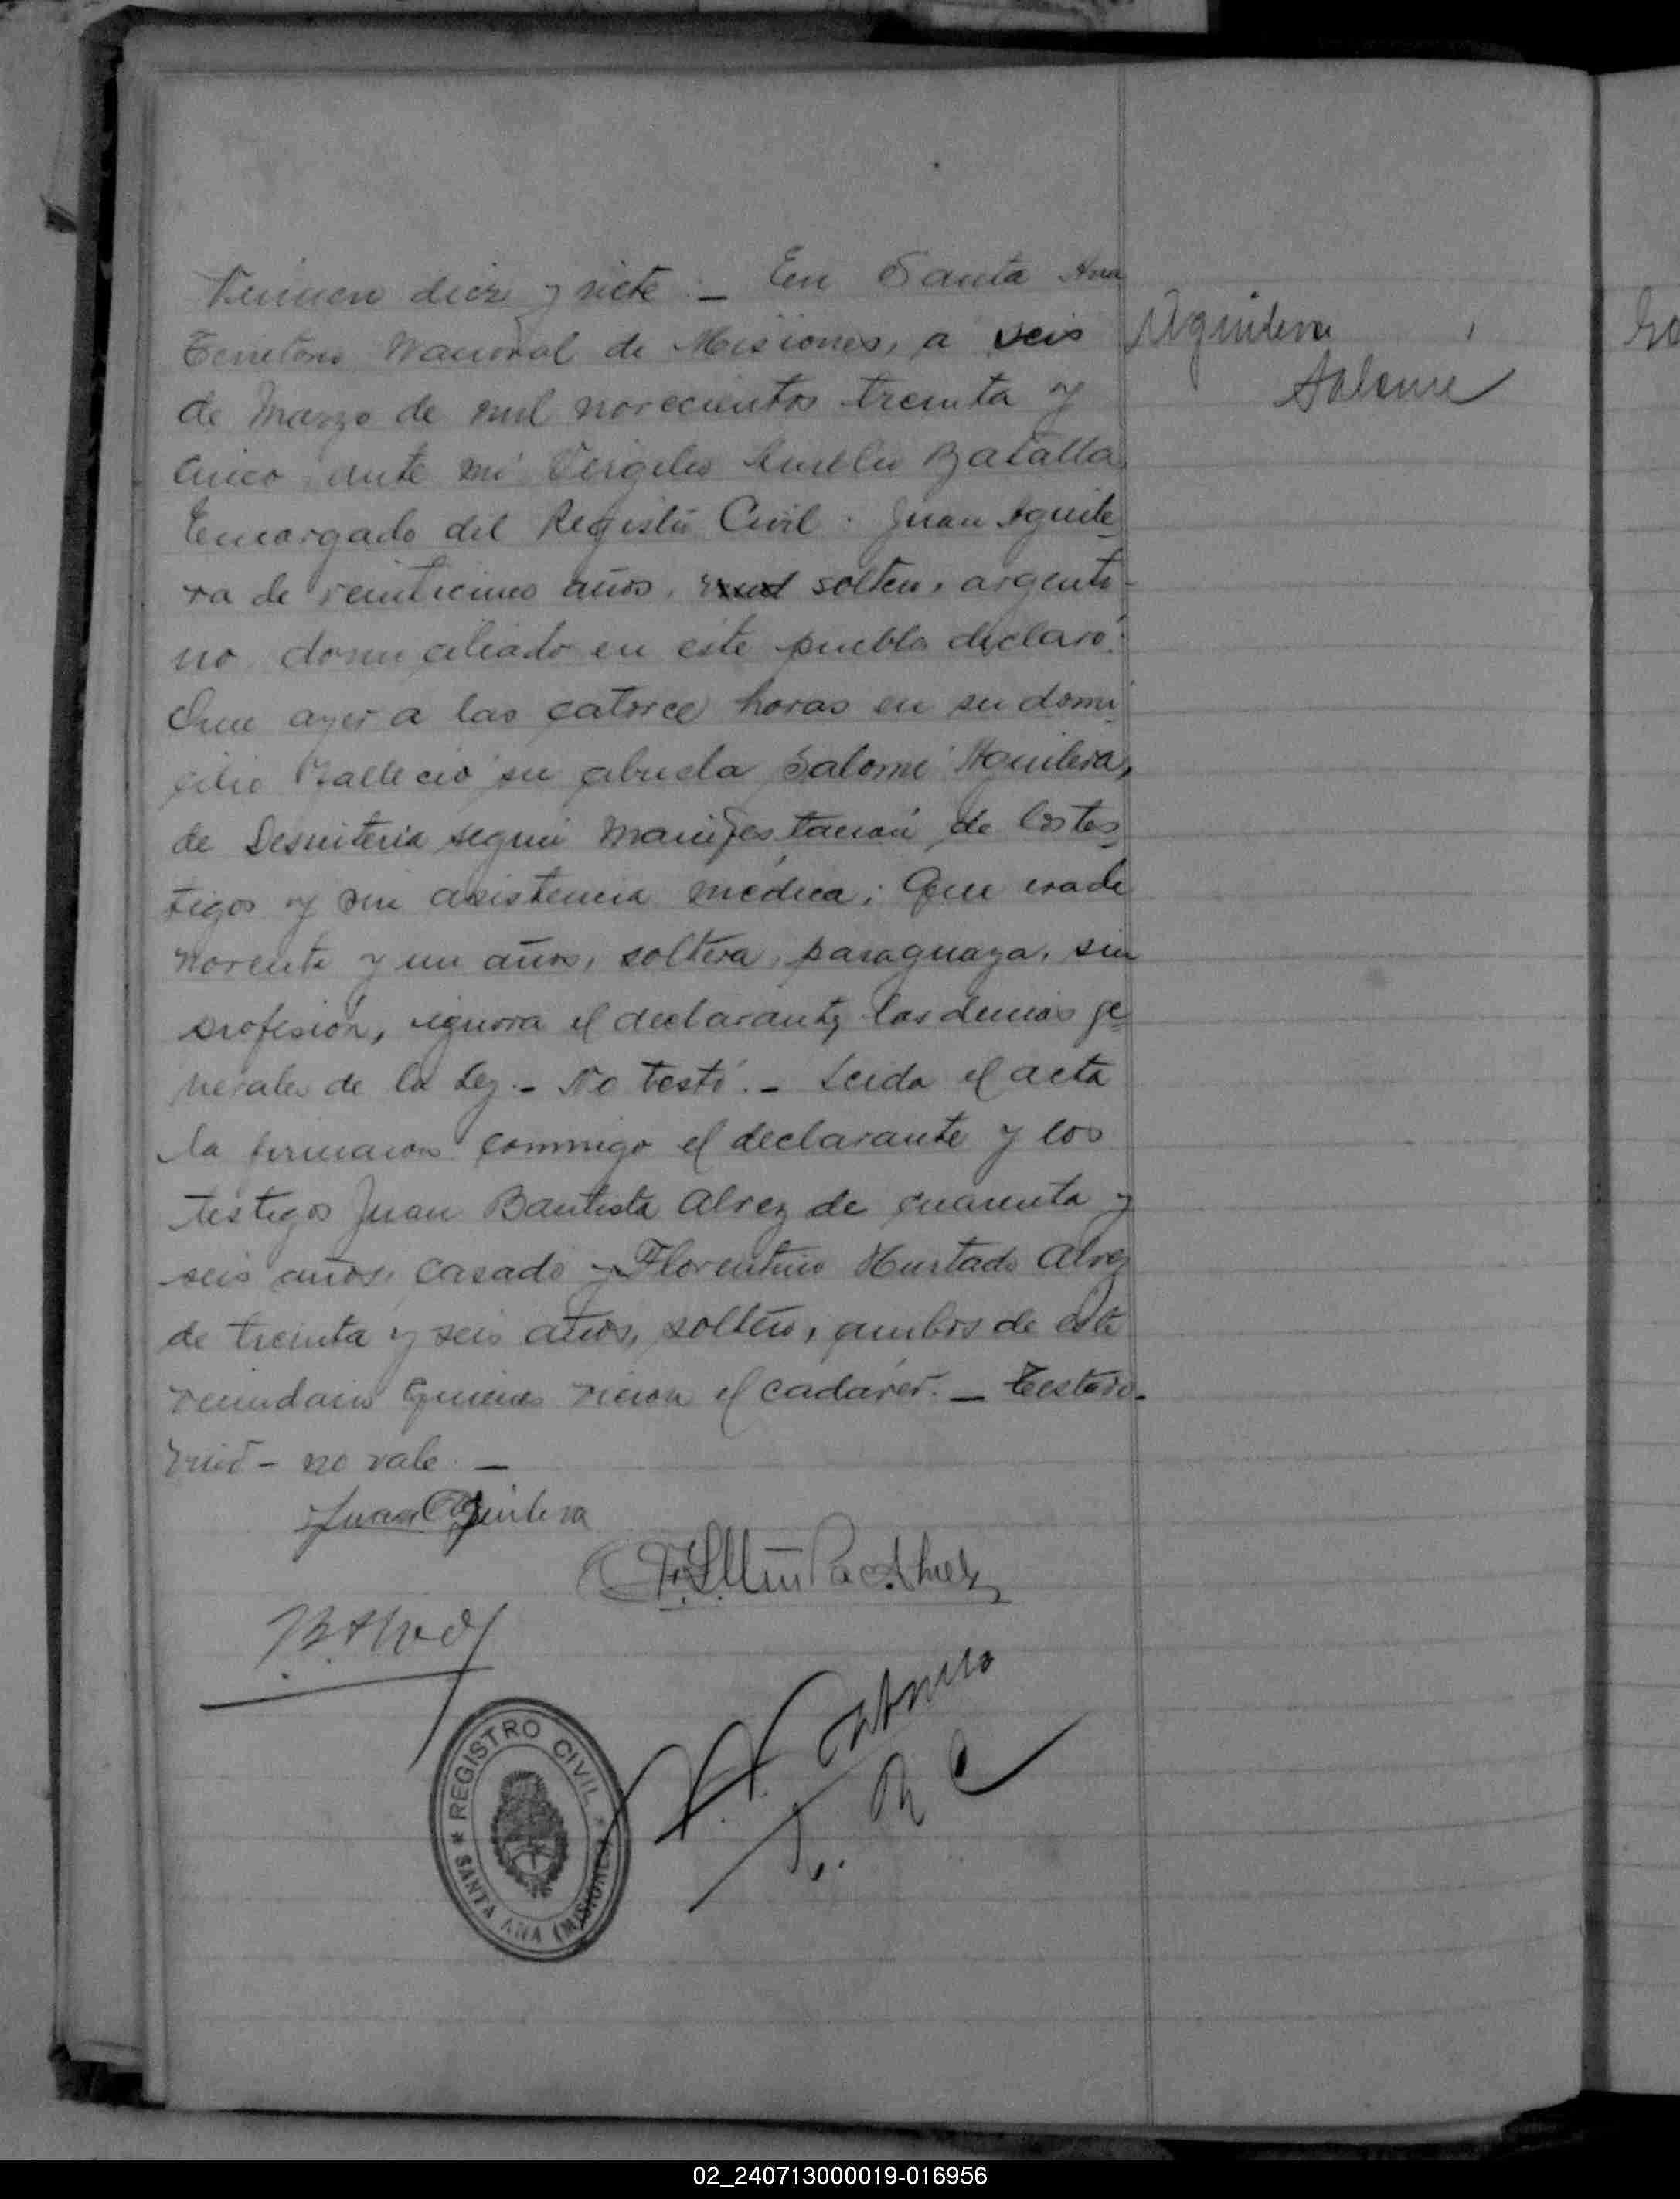 Número diez y siete.— En Santa Ana
Territorio Nacional de Misiones, a seis
de Marzo de mil novecientos treinta y
cinco ante mí Virgilio Aurelio Batalla
Encargado del Registro Civil. Juan Aguile-
ra de veinticinco años, soltero, argenti-
no domiciliado en este pueblo declaró:
Que ayer a las catorce horas en su domi-
cilio falleció su abuela Salomé Aguilera,
de Desinteria según manifestación de los tes-
tigos y sin asistencia médica; Que era de
noventa y un años, soltera, paraguaya, sin
profesión, ignora el declarante, las demás ge-
nerales de la Ley.- No testó.- Leida el acta
la firmaron conmigo el declarante y los
testigos Juan Bautista Alvez de cuarenta y
seis años, casado y Florentino Hurtado Alvez
de treinta y seis años, soltero, ambos de este
vecindario quienes vieron el cadáver.— Testado-
no vale.—
Juan Aguilera
REGISTRO CIVIL
* SANTA ANA (MISIONES) *
E. R C
Aguilera
Salomé
02_240713000019-016956